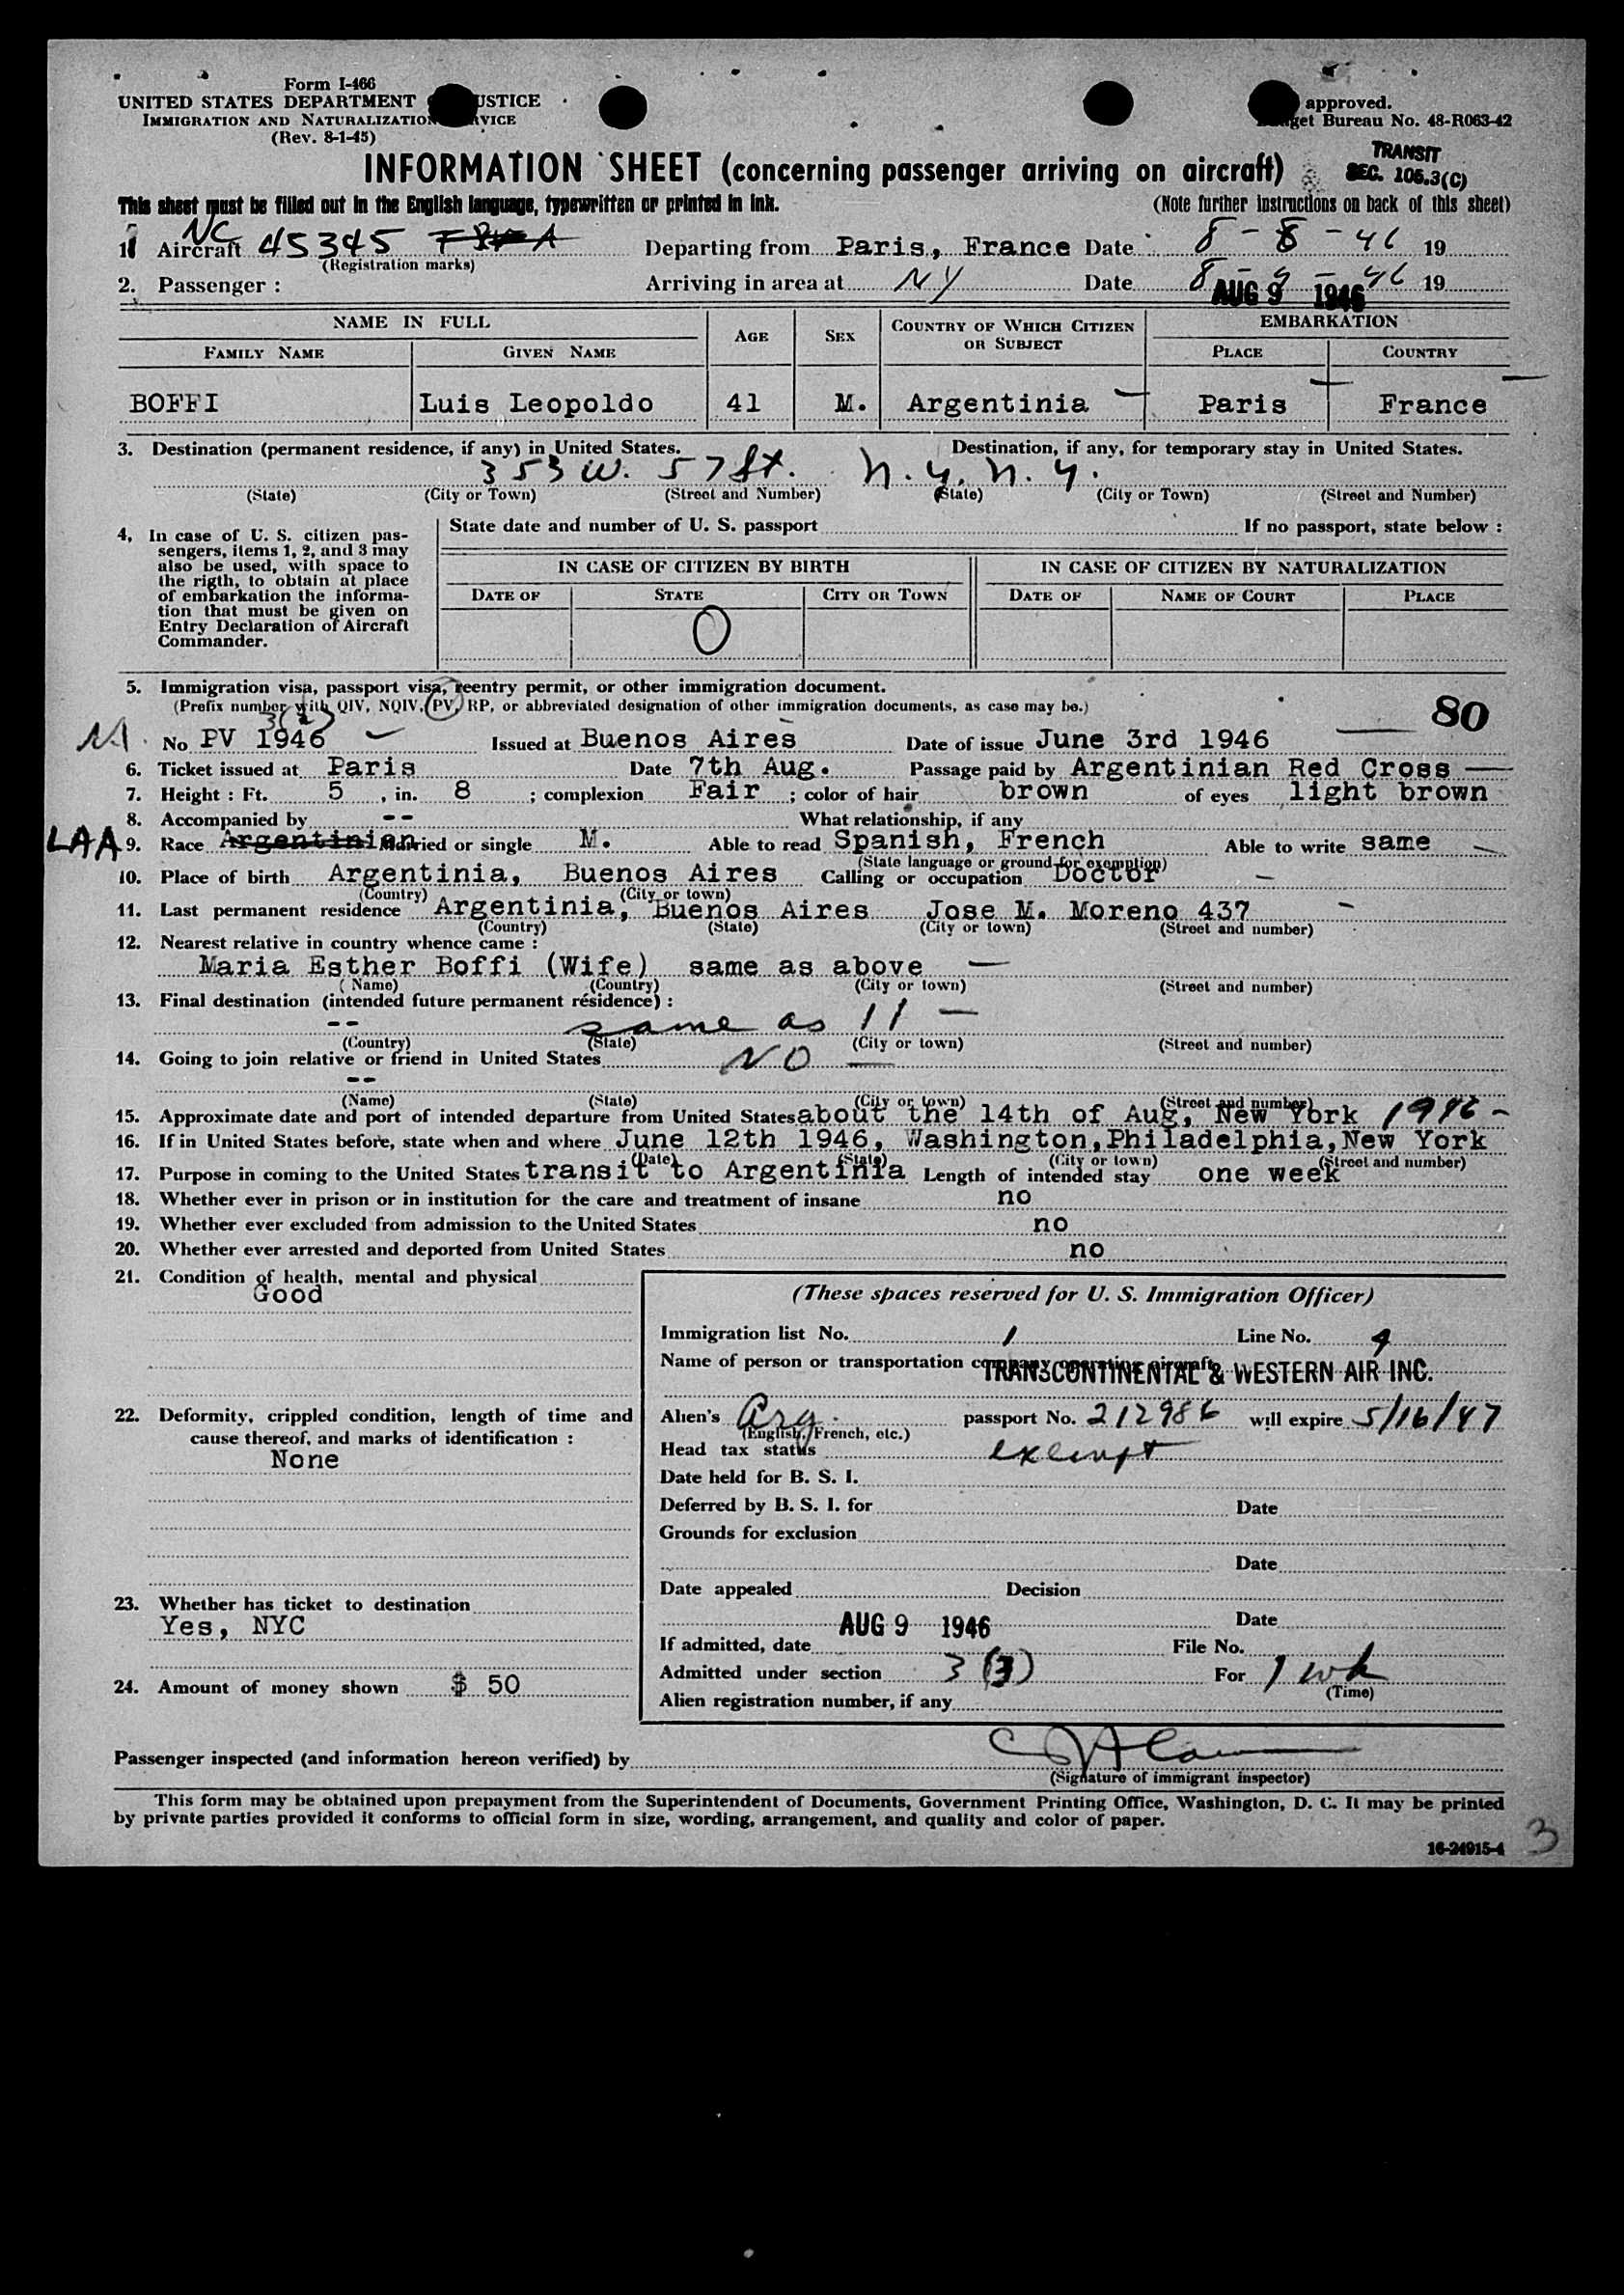 Form I-466
UNITED STATES DEPARTMENT USTICE
IMMIGRATION AND NATURALIZATION RVICE
(Rev. 8-1-45)
approved.
get Bureau No. 48-R063-42
TRANSIT
SEC. 105.3(C)
INFORMATION SHEET (concerning passenger arriving on aircraft)
This sheet must be filled out in the English language, typewritten or printed in ink.
(Note further instructions on back of this sheet)
1. Aircraft NC 45345 Departing from Paris, France Date 8-8-46 19
(Registration marks)
2. Passenger : Arriving in area at NY Date 8-9-46 19
AUG 9 1946
NAME IN FULL AGE SEX COUNTRY OF WHICH CITIZEN OR SUBJECT EMBARKATION
FAMILY NAME GIVEN NAME PLACE COUNTRY
BOFFI Luis Leopoldo 41 M. Argentinia Paris France
3. Destination (permanent residence, if any) in United States. Destination, if any, for temporary stay in United States.
353 W. 57 St. N.Y. N.Y.
(State) (City or Town) (Street and Number) (State) (City or Town) (Street and Number)
4, In case of U. S. citizen pas-
sengers, items 1, 2, and 3 may
also be used, with space to
the rigth, to obtain at place
of embarkation the informa-
tion that must be given on
Entry Declaration of Aircraft
Commander.
State date and number of U. S. passport If no passport, state below :
IN CASE OF CITIZEN BY BIRTH IN CASE OF CITIZEN BY NATURALIZATION
DATE OF STATE CITY OR TOWN DATE OF NAME OF COURT PLACE
0
5. Immigration visa, passport visa, reentry permit, or other immigration document.
(Prefix number with QIV, NQIV, PV, RP, or abbreviated designation of other immigration documents, as case may be.)
80
3(2)
No PV 1946 Issued at Buenos Aires Date of issue June 3rd 1946
6. Ticket issued at Paris Date 7th Aug. Passage paid by Argentinian Red Cross
7. Height : Ft. 5 , in. 8 ; complexion Fair ; color of hair brown of eyes light brown
8. Accompanied by -- What relationship, if any
LAA 9. Race Argentinian Married or single M. Able to read Spanish, French Able to write same
(State language or ground for exemption)
10. Place of birth Argentinia, Buenos Aires Calling or occupation Doctor
(Country) (City or town)
11. Last permanent residence Argentinia, Buenos Aires Jose M. Moreno 437
(Country) (State) (City or town) (Street and number)
12. Nearest relative in country whence came :
Maria Esther Boffi (Wife) same as above
( Name) (Country) (City or town) (Street and number)
13. Final destination (intended future permanent résidence) :
-- same as 11
(Country) (State) (City or town) (Street and number)
14. Going to join relative or friend in United States NO
--
(Name) (State) (City or town) (Street and number)
15. Approximate date and port of intended departure from United States about the 14th of Aug, New York 1946
16. If in United States before, state when and where June 12th 1946, Washington,Philadelphia,New York
(Date) (State) (City or town) (Street and number)
17. Purpose in coming to the United States transit to Argentinia Length of intended stay one week
18. Whether ever in prison or in institution for the care and treatment of insane no
19. Whether ever excluded from admission to the United States no
20. Whether ever arrested and deported from United States no
21. Condition of health, mental and physical
Good
22. Deformity, crippled condition, length of time and
cause thereof, and marks of identification :
None
23. Whether has ticket to destination
Yes, NYC
24. Amount of money shown $ 50
(These spaces reserved for U. S. Immigration Officer)
Immigration list No. 1 Line No. 9
Name of person or transportation company operating aircraft
TRANSCONTINENTAL & WESTERN AIR INC.
Alien's Arg. passport No. 212986 will expire 5/16/47
(English, French, etc.)
Head tax status exempt
Date held for B. S. I.
Deferred by B. S. I. for Date
Grounds for exclusion
Date
Date appealed Decision
Date
AUG 9 1946
If admitted, date File No.
Admitted under section 3 (3) For 1 wk
(Time)
Alien registration number, if any
Passenger inspected (and information hereon verified) by
(Signature of immigrant inspector)
This form may be obtained upon prepayment from the Superintendent of Documents, Government Printing Office, Washington, D. C. It may be printed
by private parties provided it conforms to official form in size, wording, arrangement, and quality and color of paper.
16-24915-4
3